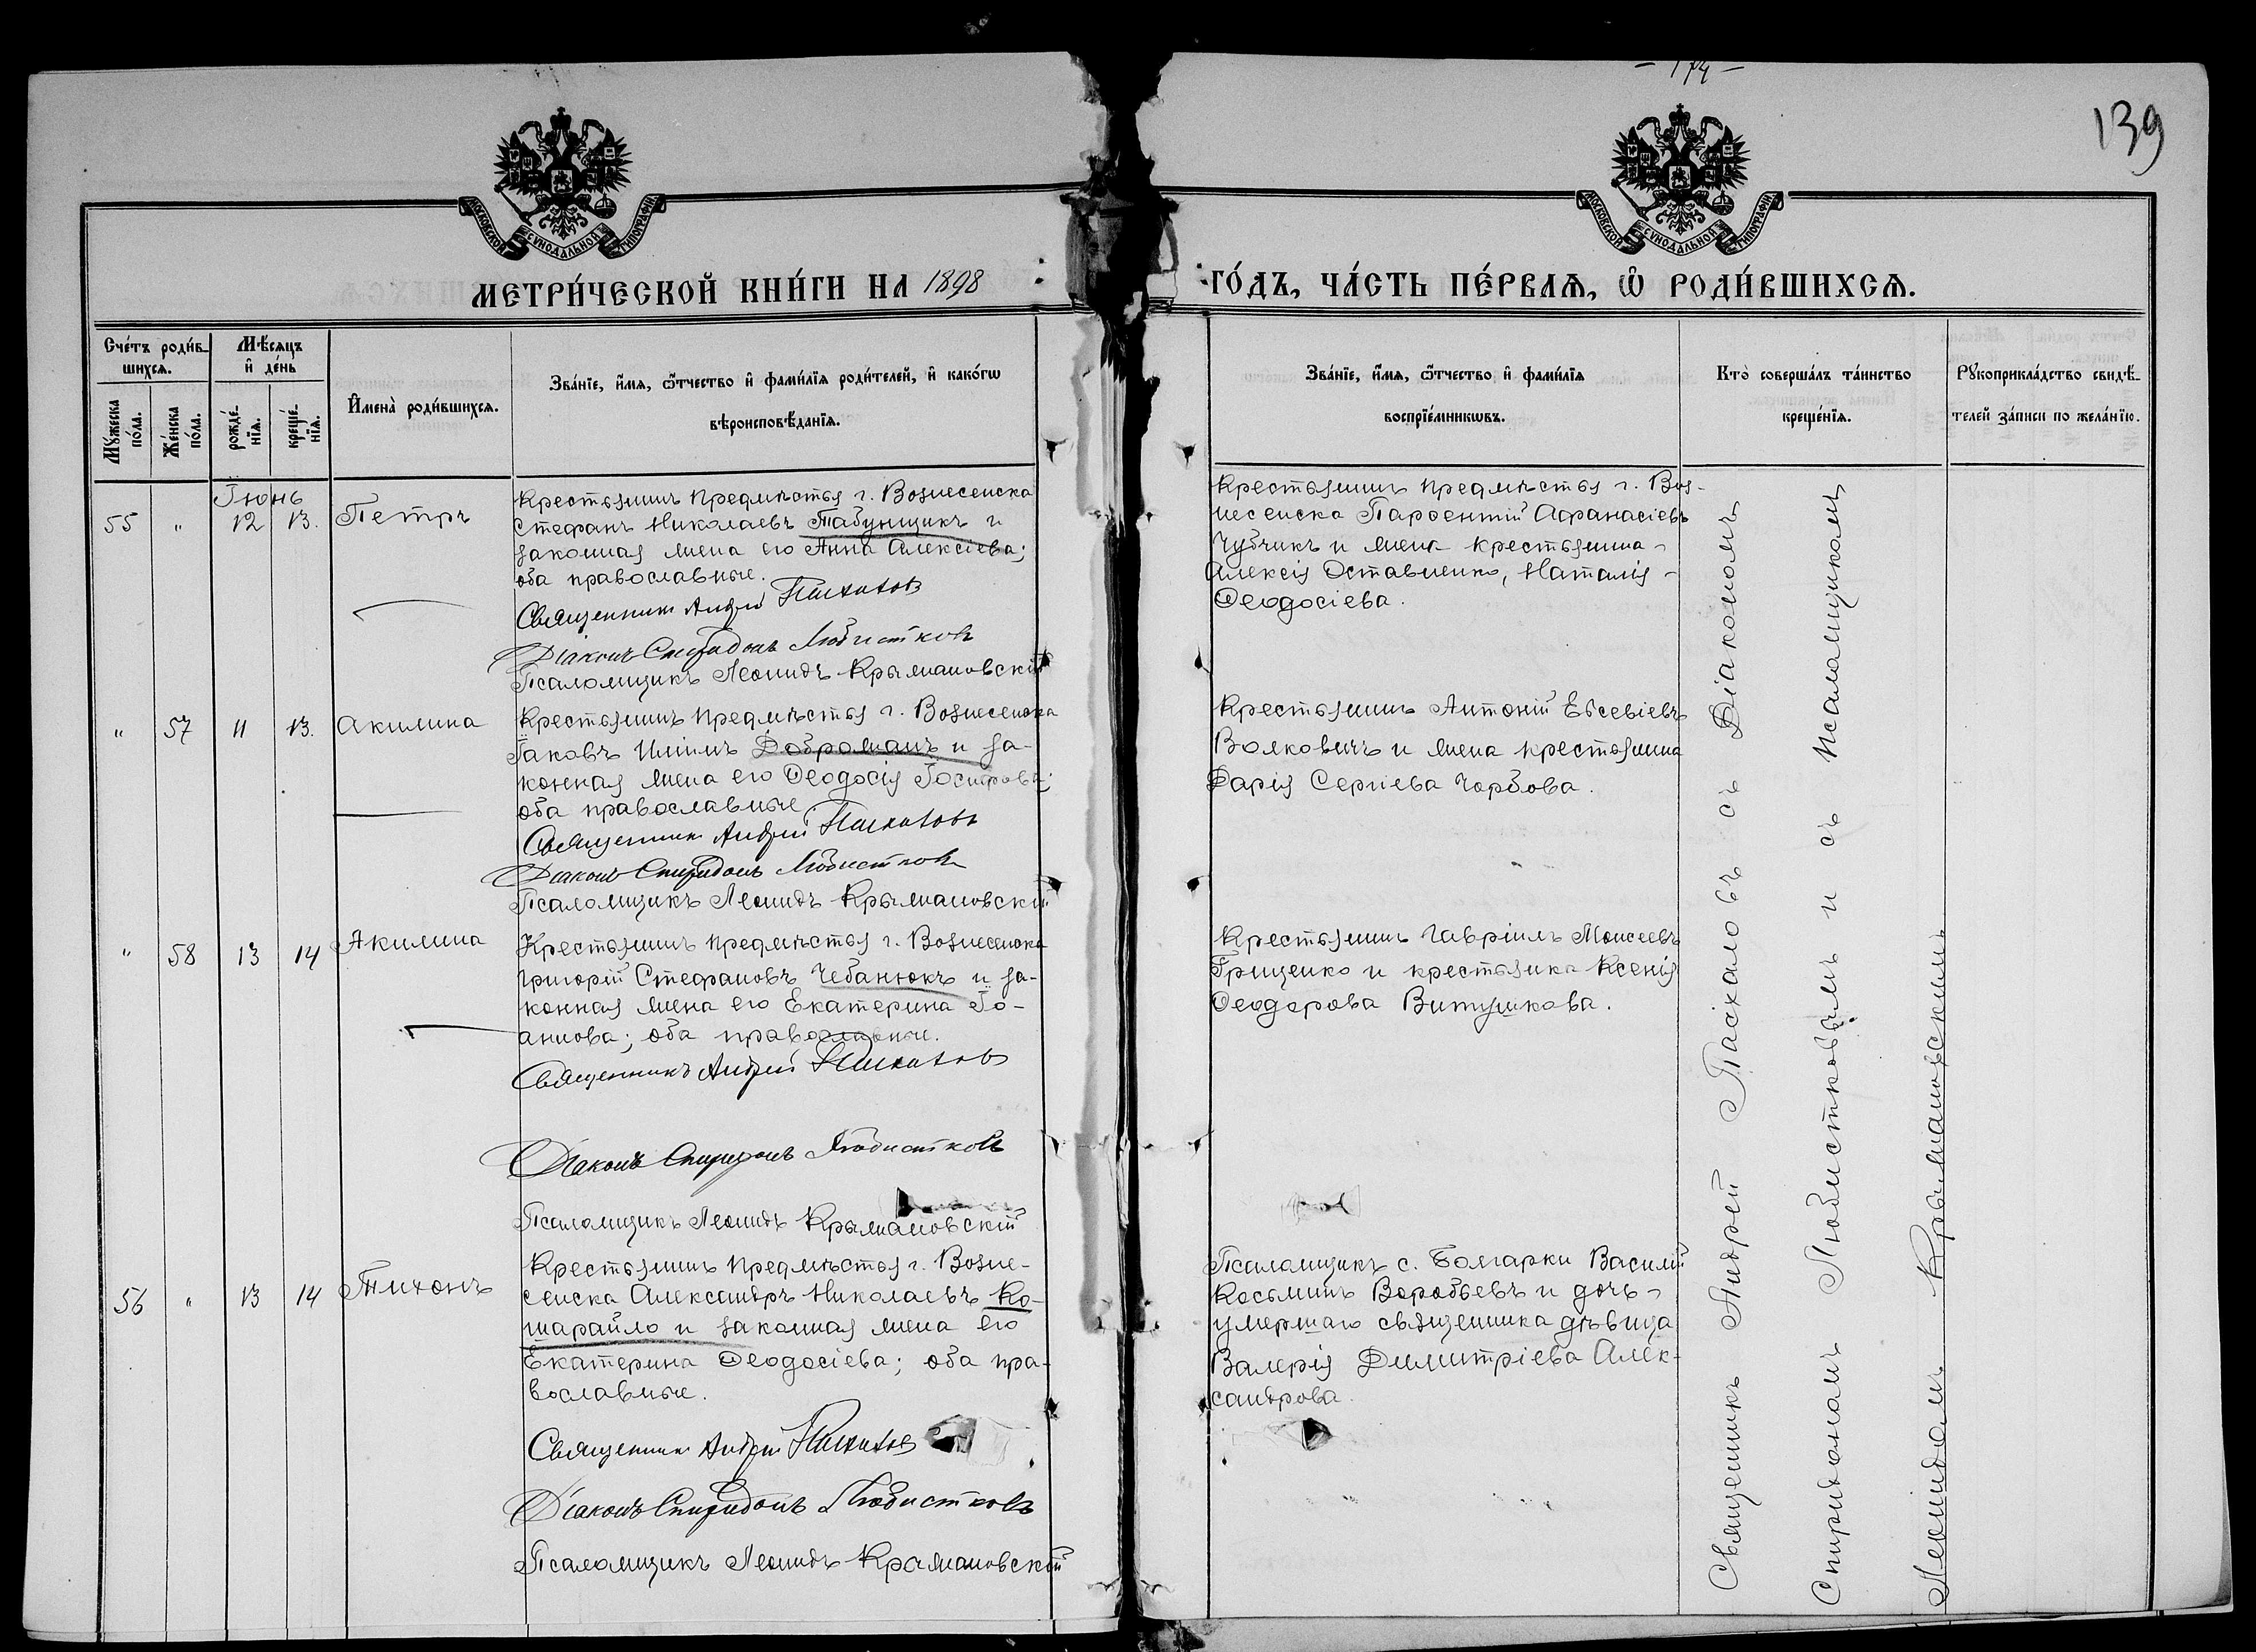 - 174 -
139
МОСКОВСКОЙ СѴНОДАЛЬНОЙ ТИПОГРАФІИ
МОСКОВСКОЙ СѴНОДАЛЬНОЙ ТИПОГРАФІИ
МЕТРИ́ЧЕСКОЙ КНИ́ГИ НА 1898
ГО́ДЪ, ЧА́СТЬ ПЕ́РВАѦ, Ѽ РОДИ́ВШИХСѦ.
Сче́тъ роди́в-
шихсѧ.
Мꙋ́жеска по́ла.
Же́нска по́ла.
Мѣ́сѧцъ
и҆ де́нь
рожде́-нїѧ.
креще́-нїѧ.
И҆мена̀ роди́вшихсѧ.
Зва́нїе, и҆́мѧ, ѻ҆́тчество и҆ фами́лїѧ роди́телей, и҆ како́гѡ
вѣроисповѣ́данїѧ.
Зва́нїе, и҆́мѧ, ѻ҆́тчество и҆ фами́лїѧ
воспрїе́мникѡвъ.
Кто̀ соверша́лъ та́инство
креще́нїѧ.
Рꙋкоприкла́дство свидѣ́-
телей за́писи по жела́нїю.
Іюнь
55 " 12 13. Петръ
Крестьянинъ предмѣстья г. Вознесенска
Стефанъ Николаевъ Табунщикъ и
законная жена его Анна Алексіева;
оба православные.
Священникъ Андрей Пасхаловъ
Діаконъ Спиридонъ Любистковъ
Псаломщикъ Леонидъ Крыжановскій
Крестьянинъ предмѣстья г. Воз-
несенска Парѳентій Аѳанасіевъ
Чубчикъ и жена крестьянина
Алексія Оставненко, Наталія
Ѳеодосіева.
" 57 11 13. Акилина
Крестьянинъ предмѣстья г. Вознесенска
Іаковъ Иліинъ Доброманъ и за-
конная жена его Ѳеодосія Іосифова;
оба православные
Священникъ Андрей Пасхаловъ
Діаконъ Спиридонъ Любистковъ
Псаломщикъ Леонидъ Крыжановскій
Крестьянинъ Антоній Евсевіевъ
Волковичъ и жена крестьянина
Дарія Сергіева Чорбова.
" 58 13 14 Акилина
Крестьянинъ предмѣстья г. Вознесенска
Григорій Стефановъ Чебанюкъ и за-
конная жена его Екатерина Іо-
аннова; оба православные.
Священникъ Андрей Пасхаловъ
Діаконъ Спиридонъ Любистковъ
Псаломщикъ Леонидъ Крыжановскій
Крестьянинъ Гавріилъ Моисеевъ
Грищенко и крестьянка Ксенія
Ѳеодорова Витушкова.
56 " 13 14 Тихонъ
Крестьянинъ предмѣстья г. Возне-
сенска Александръ Николаевъ Ко-
шарайло и законная жена его
Екатерина Ѳеодосіева; оба пра-
вославные.
Священникъ Андрей Пасхаловъ
Діаконъ Спиридонъ Любистковъ
Псаломщикъ Леонидъ Крыжановскій
Псаломщикъ с. Болгарки Василій
Косьминъ Воробьевъ и дочь
умершаго священника дѣвица
Валерія Димитріева Алек-
сандрова.
Священникъ Андрей Пасхаловъ съ Діакономъ
Спиридономъ Любистковымъ и съ псаломщикомъ
Леонидомъ Крыжановскимъ